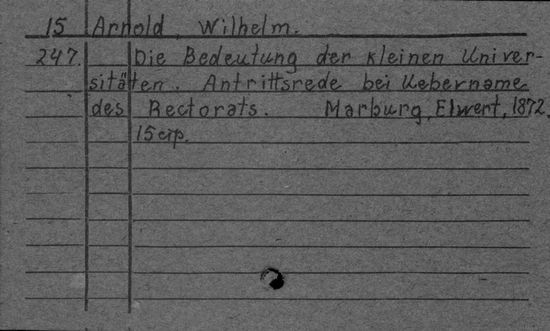 15 Arnold, Wilhelm.
247. Die Bedeutung der kleinen Univer-
sitäten. Antrittsrede bei Uebername
des Rectorats. Marburg, Elwert, 1872.